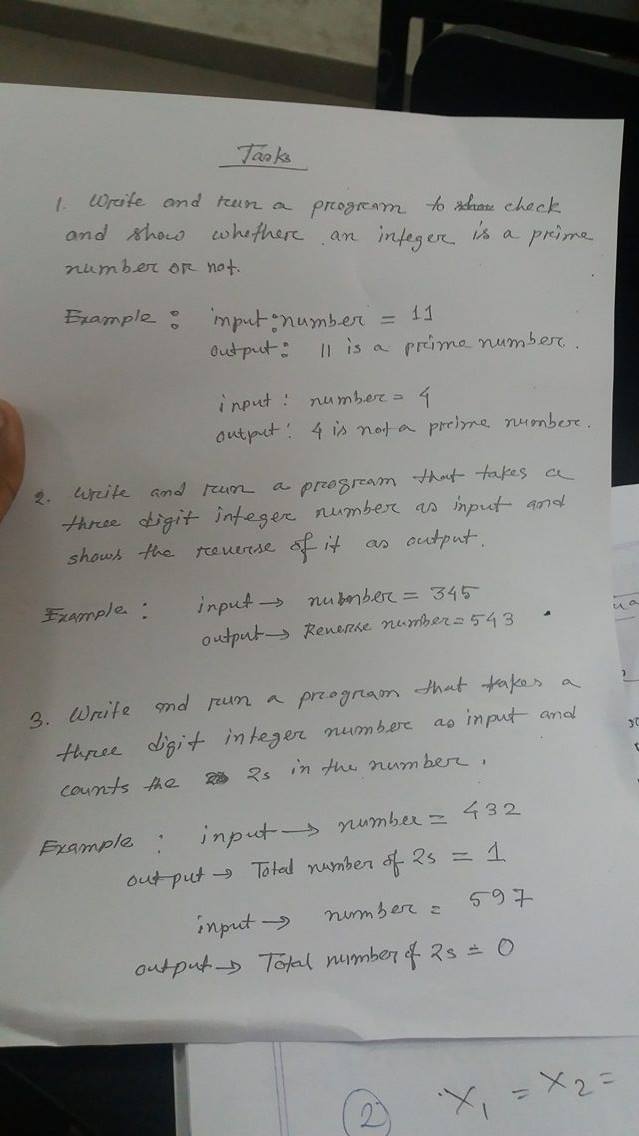 Tasks
1. Write and run a program to check
and show whether an integer is a prime
number or not.
Example : input : number = 11
output : 11 is a prime number.
input : number = 4
output : 4 is not a prime number.
2. Write and run a program that takes a
three digit integer number as input and
shows the reverse of it as output.
Example : input → number = 345
output → Reverse number = 543
3. Write and run a program that takes a
three digit integer number as input and
counts the 2s in the number.
Example : input → number = 432
output → Total number of 2s = 1
input → number = 597
output → Total number of 2s = 0
2 X1 = X2 =